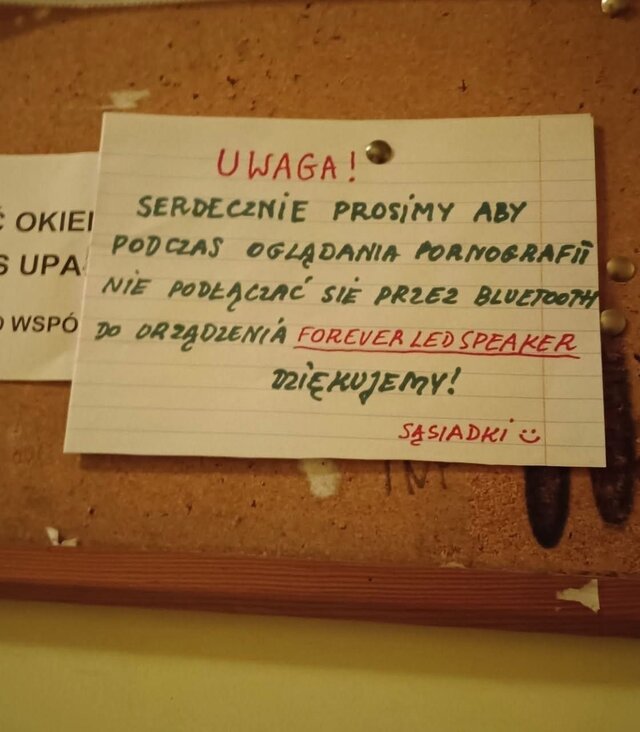 UWAGA!
SERDECZNIE PROSIMY ABY
PODCZAS OGLĄDANIA PORNOGRAFII
NIE PODŁĄCZAĆ SIĘ PRZEZ BLUETOOTH
DO ORZĄDZENIA FOREVER LED SPEAKER
DZIĘKUJEMY!
SĄSIADKI :)
OKIE
UPA
WSPÓ